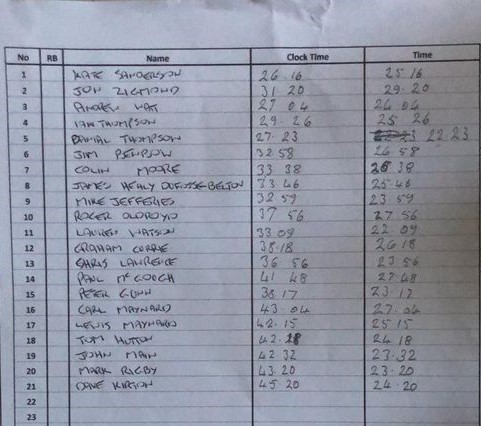 No RB Name Clock Time Time
1 KATE SANDERSON 26.16 25 16
2 JON ZIGMOND 31 20 29.20
3 ANDREW WAT 27 04 24.04
4 IAN THOMPSON 29.26 25 26
5 DANIAL THOMPSON 27.23 22 23
6 JIM BENBOW 32 58 26 58
7 COLIN MOORE 33 38 26 38
8 JAMES HEALY 33 46 25.46
9 MIKE JEFFERIES 32 59 23 59
10 ROGER OLDROYD 37 56 27.56
11 LAUREN WATSON 33.09 22 09
12 GRAHAM CURRIE 38.18 26 18
13 CHRIS LAWRENCE 36 56 23 56
14 PAUL McGOUGH 41 48 27.48
15 PETER GUNN 38 17 23.17
16 CARL MAYNARD 43.04 27.04
17 LEWIS MAYNARD 42.15 25 15
18 TOM HUTTON 42.18 24 18
19 JOHN MAIN 42 32 23.32
20 MARK RIGBY 43.20 23.20
21 DAVE KIRTON 45.20 24.20
22
23